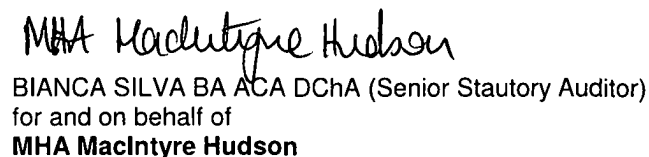 MHA MacIntyre Hudson
BIANCA SILVA BA ACA DChA (Senior Stautory Auditor)
for and on behalf of
MHA MacIntyre Hudson